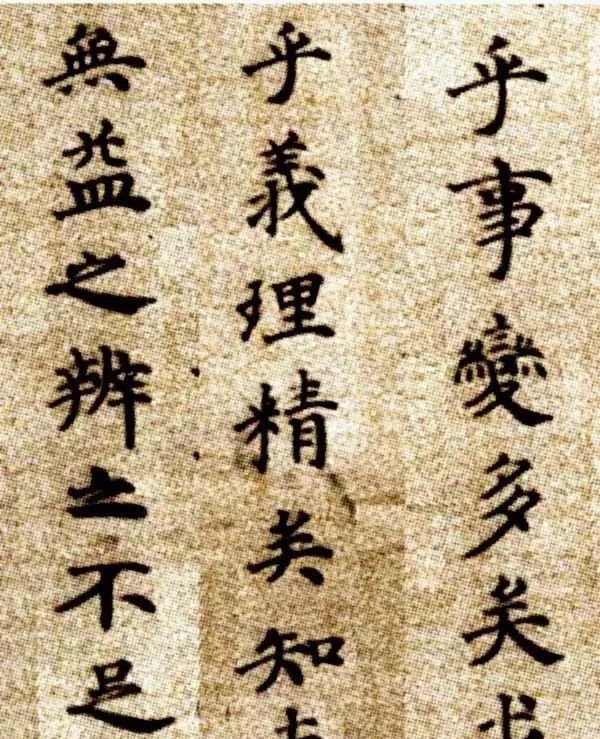 乎事變多矣
乎義理精矣知
無益之辨之不足